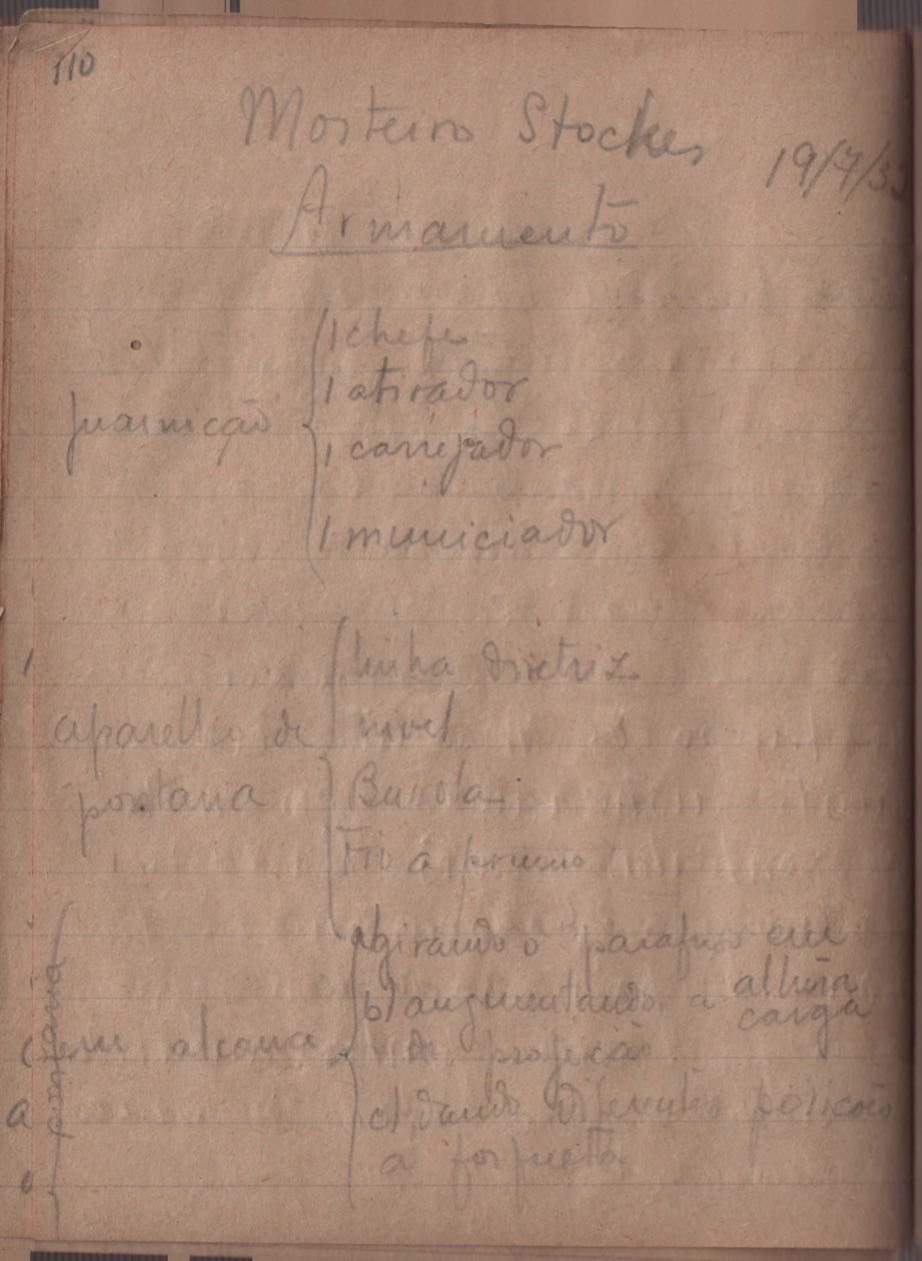 110
Morteiro Stockes
19/7/33
Armamento
guarnição
1 chefe
1 atirador
1 carregador
1 municiador
aparelho de
pontaria
linha diretriz
nivel
Bussola
Fio a prumo
pontaria
em alcance
a) girando o parafuso em
altura
b) augmentando a carga
de projeção
c) dando diferentes posições
a forqueta